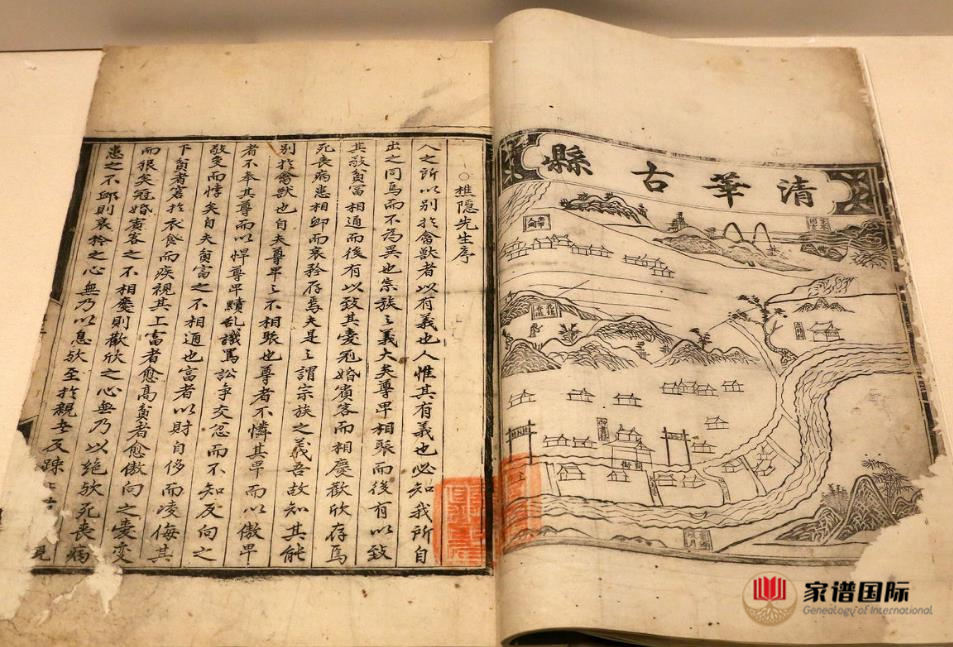 清華古縣
○樵隐先生序
人之所以别於禽獸者以有義也人惟其有義也必知我所自
出之同焉而不為異也宗族之義大矣尊卑相聚而後有以致
其敬貧富相通而後有以致其愛冠婚賓客而相慶歡欣存焉
死喪病患相卹而哀矜存焉夫是之謂宗族之義吾故知其能
别於禽獸也自夫尊卑之不相聚也尊者不憐其卑而以傲卑
者不奉其尊而以悍尊卑續乱譏罵訟爭交忽而不知反向之
敬变而悖矣自夫貧富之不相通也富者以財自侈而凌侮其
下貧者窘於衣食而疾視其上富者愈高貧者愈傲向之愛变
而狠矣冠婚賓客之不相慶則歡欣之心無乃以絶欤死喪病
患之不卹則哀矜之心無乃以息欤至於親
家谱国际
Genealogy of International